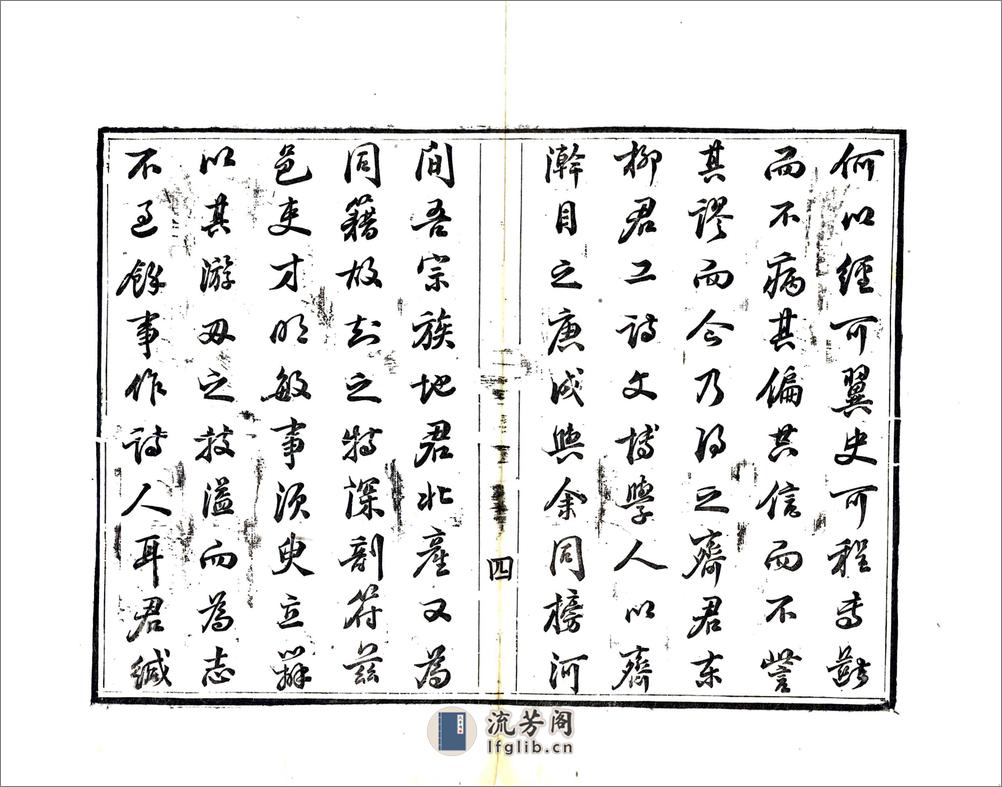 何以經可翼史可程專嚴
而不病其偏其信而不訾
其謬而今乃得之齊君東
柳君工詩文博學人以齊
澣目之庚戌與余同榜河
間吾宗族地君北產又為
同籍故知之特深剖符茲
邑吏才明敏事須臾立辦
以其游刃之技溢而為志
不過餘事作詩人耳君緘
四
流芳阁
lfglib.cn